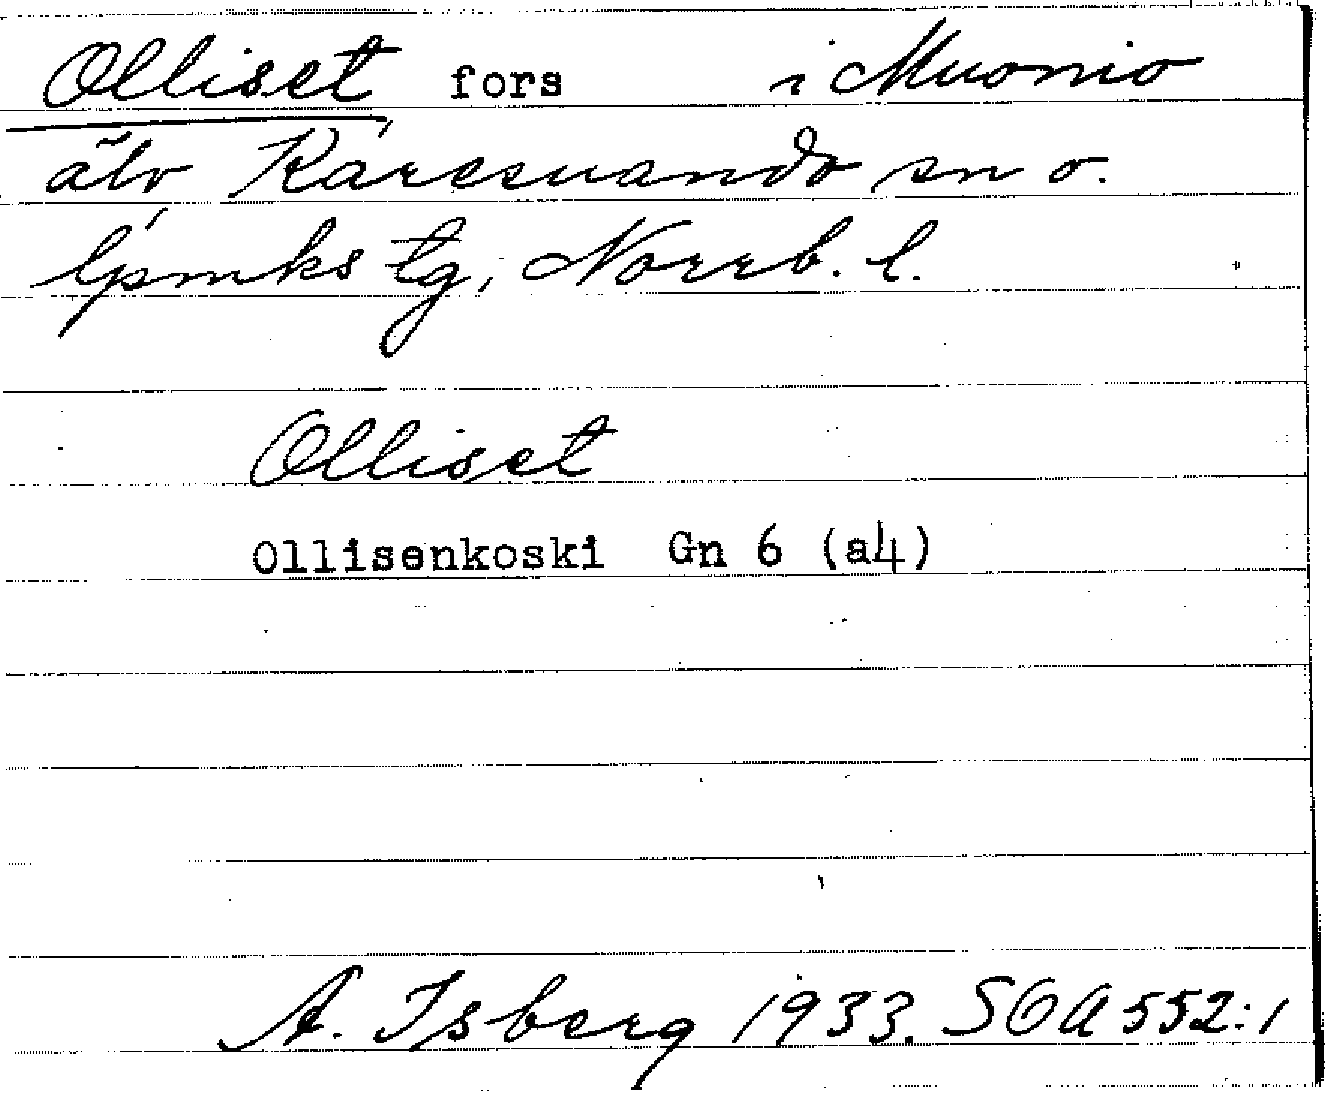 Olliset fors i Muonio
älv Karesuando sn o.
lpmks tg, Norrb. l.
Olliset
Ollisenkoski Gn 6 (a4)
A. Isberg 1933. SOA 552:1